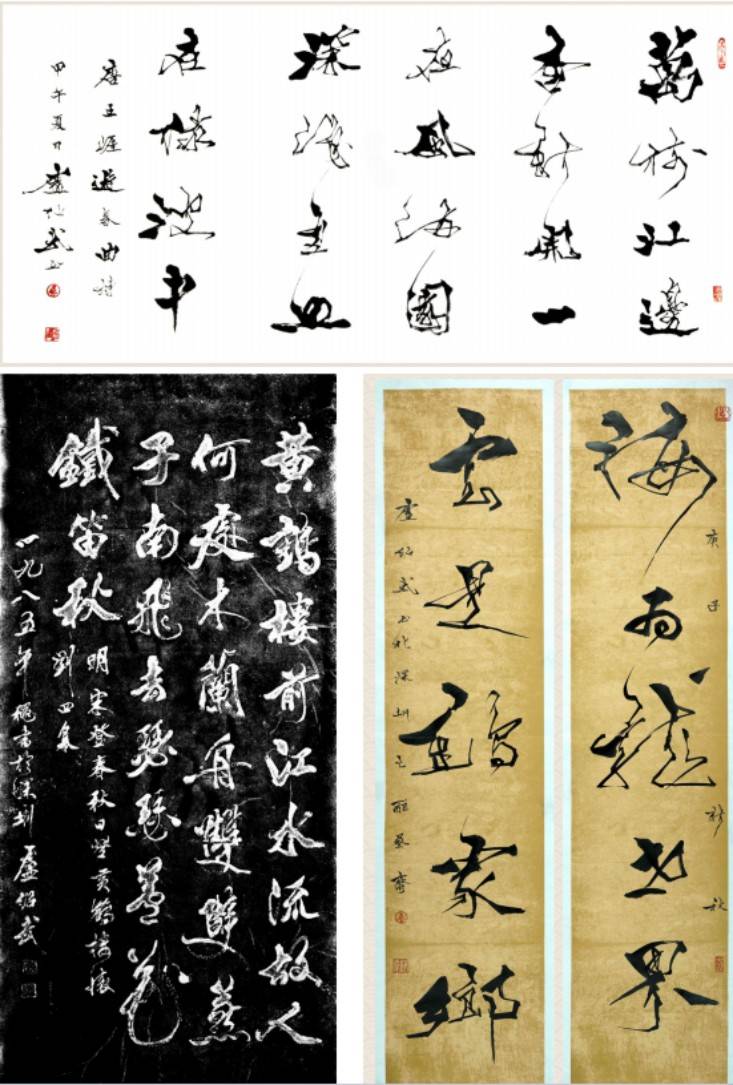 萬樹江邊
杏新開一
夜風滿園
深淺色照
在綠波中
唐王涯遊春曲詩
甲午夏日盧紹武書
黃鶴樓前江水流故人
何處木蘭舟雙雙燕
子南飛去瑟瑟蘆花
鐵笛秋
明宋登春秋日登黃鶴樓懷
劉四
一九八五年穐書於深圳盧紹武
海為龍世界
庚子秋
雲是鶴家鄉
盧紹武書於深圳之齋